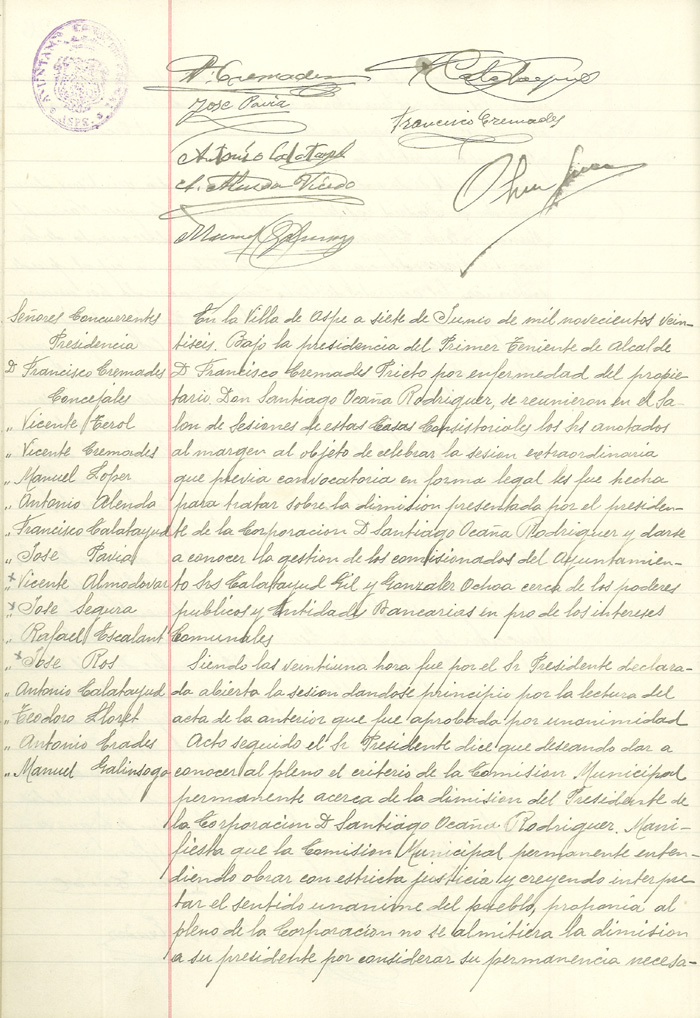 V. Cremades
Jose Pavia
Antonio Calatayud
A. Alenda Vicedo
Manuel Galinsoga
F Calatayud
Francisco Cremades
Señores Concurrentes
Presidencia
D Francisco Cremades
Concejales
" Vicente Terol
" Vicente Cremades
" Manuel Loper
" Antonio Alenda
" Francisco Calatayud
" Jose Pavia
" x Vicente Almodovar
" x Jose Segura
" Rafael Escalant
" x Jose Ros
" Antonio Calatayud
" Teodoro Lloret
" Antonio Erades
" Manuel Galinsoga
En la Villa de Aspe a siete de Junio de mil novecientos vein-
tiseis. Bajo la presidencia del Primer Teniente de Alcalde
D Francisco Cremades Prieto por enfermedad del propie-
tario, Don Santiago Ocaña Rodriguer, se reunieron en el Sa-
lon de Sesiones de estas Casas Consistoriales los Srs anotados
al margen al objeto de celebrar la sesion extraordinaria
que previa convocatoria en forma legal les fue hecha
para tratar sobre la dimision presentada por el presiden-
te de la Corporacion D Santiago Ocaña Rodriguer y darse
a conocer la gestion de los comisionados del Ayuntamien-
to Srs Calatayud Gil y Gonzaler Ochoa cerca de los poderes
publicos y Entidades Bancarias en pro de los intereses
Comunales
Siendo las veintiuna hora fue por el Sr Presidente declara-
da abierta la sesion dandose principio por la lectura del
acta de la anterior que fue aprobada por unanimidad
Acto seguido el Sr Presidente dice que deseando dar a
conocer al pleno el criterio de la Comision Municipal
permanente acerca de la dimision del Presidente de
la Corporacion D Santiago Ocaña Rodriguer. Mani-
fiesta que la Comision Municipal permanente enten-
diendo obrar con estricta justicia y creyendo interpre
tar el sentido unanime del pueblo, proponia al
pleno de la Corporacion no se almitiera la dimision
a su presidente por considerar su permanencia necesa-